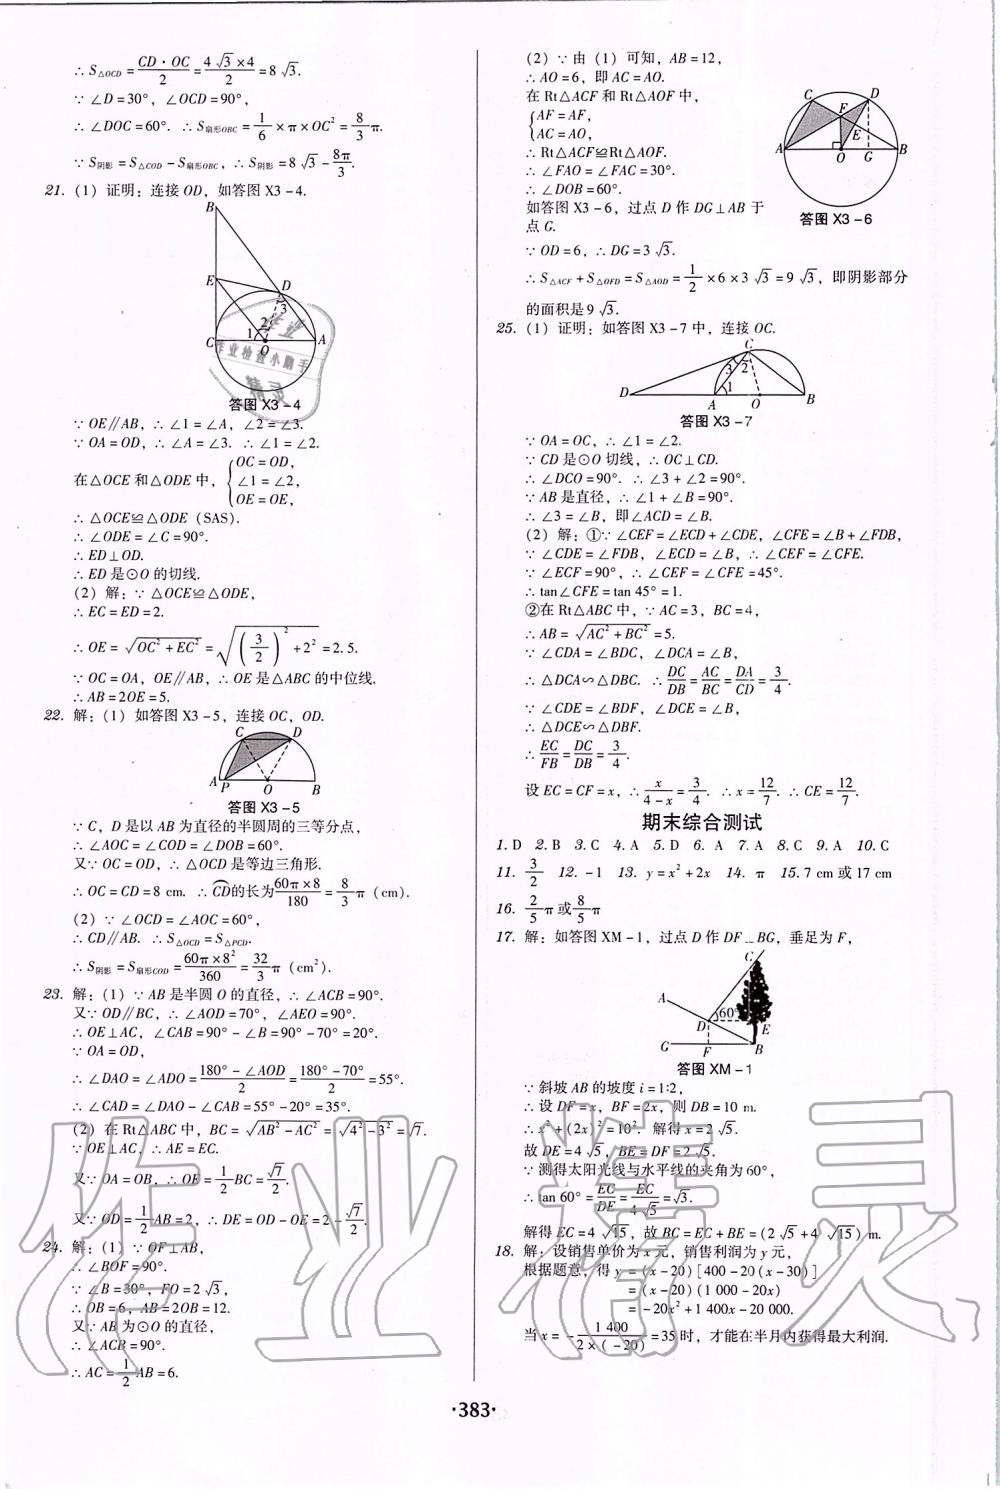 ∴S△OCD=CD·OC/2=4√3×4/2=8√3.
∵∠D=30°，∠OCD=90°，
∴∠DOC=60°. ∴S扇形OBC=1/6×π×OC²=8/3π.
∵S阴影=S△COD-S扇形OBC，∴S阴影=8√3-8π/3.
21. (1) 证明：连接 OD，如答图 X3-4.
B
E
D
3
2
1
C
O
A
答图 X3-4
∵OE∥AB，∴∠1=∠A，∠2=∠3.
∵OA=OD，∴∠A=∠3. ∴∠1=∠2.
在△OCE 和△ODE 中，{OC=OD，
∠1=∠2，
OE=OE，
∴△OCE≌△ODE (SAS).
∴∠ODE=∠C=90°.
∴ED⊥OD.
∴ED 是⊙O 的切线.
(2) 解：∵△OCE≌△ODE，
∴EC=ED=2.
∴OE=√(OC²+EC²)=√((3/2)²+2²)=2.5.
∵OC=OA，OE∥AB，∴OE 是△ABC 的中位线.
∴AB=2OE=5.
22. 解：(1) 如答图 X3-5，连接 OC，OD.
C
D
A
P
O
B
答图 X3-5
∵C，D 是以 AB 为直径的半圆周的三等分点，
∴∠AOC=∠COD=∠DOB=60°.
又∵OC=OD，∴△OCD 是等边三角形.
∴OC=CD=8 cm. ∴CD的长为60π×8/180=8/3π (cm).
(2) ∵∠OCD=∠AOC=60°，
∴CD∥AB. ∴S△OCD=S△PCD.
∴S阴影=S扇形COD=60π×8²/360=32/3π (cm²).
23. 解：(1) ∵AB 是半圆 O 的直径，∴∠ACB=90°.
又∵OD∥BC，∴∠AOD=70°，∠AEO=90°.
∴OE⊥AC，∠CAB=90°-∠B=90°-70°=20°.
∵OA=OD，
∴∠DAO=∠ADO=180°-∠AOD/2=180°-70°/2=55°.
∴∠CAD=∠DAO-∠CAB=55°-20°=35°.
(2) 在 Rt△ABC 中，BC=√(AB²-AC²)=√(4²-3²)=√7.
∵OE⊥AC，∴AE=EC.
又∵OA=OB，∴OE=1/2BC=√7/2.
又∵OD=1/2AB=2，∴DE=OD-OE=2-√7/2.
24. 解：(1) ∵OF⊥AB，
∴∠BOF=90°.
∵∠B=30°，FO=2√3，
∴OB=6，AB=2OB=12.
又∵AB 为⊙O 的直径，
∴∠ACB=90°.
∴AC=1/2AB=6.
(2) ∵由 (1) 可知，AB=12，
∴AO=6，即 AC=AO.
在 Rt△ACF 和 Rt△AOF 中，
{AF=AF，
AC=AO，
∴Rt△ACF≌Rt△AOF.
∴∠FAO=∠FAC=30°.
∴∠DOB=60°.
如答图 X3-6，过点 D 作 DG⊥AB 于
点 G.
C
D
F
E
A
O
G
B
答图 X3-6
∵OD=6，∴DG=3√3.
∴S△ACF+S△OFD=S△AOD=1/2×6×3√3=9√3，即阴影部分
的面积是9√3.
25. (1) 证明：如答图 X3-7 中，连接 OC.
C
3
2
1
D
A
O
B
答图 X3-7
∵OA=OC，∴∠1=∠2.
∵CD 是⊙O 切线，∴OC⊥CD.
∴∠DCO=90°. ∴∠3+∠2=90°.
∵AB 是直径，∴∠1+∠B=90°.
∴∠3=∠B，即∠ACD=∠B.
(2) 解：①∵∠CEF=∠ECD+∠CDE，∠CFE=∠B+∠FDB，
∵∠CDE=∠FDB，∠ECD=∠B，∴∠CEF=∠CFE.
∵∠ECF=90°，∴∠CEF=∠CFE=45°.
∴tan∠CFE=tan 45°=1.
②在 Rt△ABC 中，∵AC=3，BC=4，
∴AB=√(AC²+BC²)=5.
∵∠CDA=∠BDC，∠DCA=∠B，
∴△DCA∽△DBC. ∴DC/DB=AC/BC=DA/CD=3/4.
∵∠CDE=∠BDF，∠DCE=∠B，
∴△DCE∽△DBF.
∴EC/FB=DC/DB=3/4.
设 EC=CF=x，∴x/4-x=3/4. ∴x=12/7. ∴CE=12/7.
期末综合测试
1. D 2. B 3. C 4. A 5. D 6. A 7. A 8. C 9. A 10. C
11. 3/2 12. -1 13. y=x²+2x 14. π 15. 7 cm 或 17 cm
16. 2/5π或8/5π
17. 解：如答图 XM-1，过点 D 作 DF⊥BG，垂足为 F，
C
A
D
60°
E
G
F
B
答图 XM-1
∵斜坡 AB 的坡度 i=1∶2，
∴设 DF=x，BF=2x，则 DB=10 m.
∴x²+(2x)²=10². 解得 x=2√5.
故 DE=4√5，BE=DF=2√5.
∵测得太阳光线与水平线的夹角为 60°，
∴tan 60°=EC/DE=EC/4√5=√3.
解得 EC=4√15，故 BC=EC+BE=(2√5+4√15) m.
18. 解：设销售单价为 x 元，销售利润为 y 元，
根据题意，得 y=(x-20)[400-20(x-30)]
=(x-20)(1 000-20x)
=-20x²+1 400x-20 000.
当 x=-1 400/2×(-20)=35 时，才能在半月内获得最大利润.
·383·
作业精灵
作业
作业检查小助手
精灵